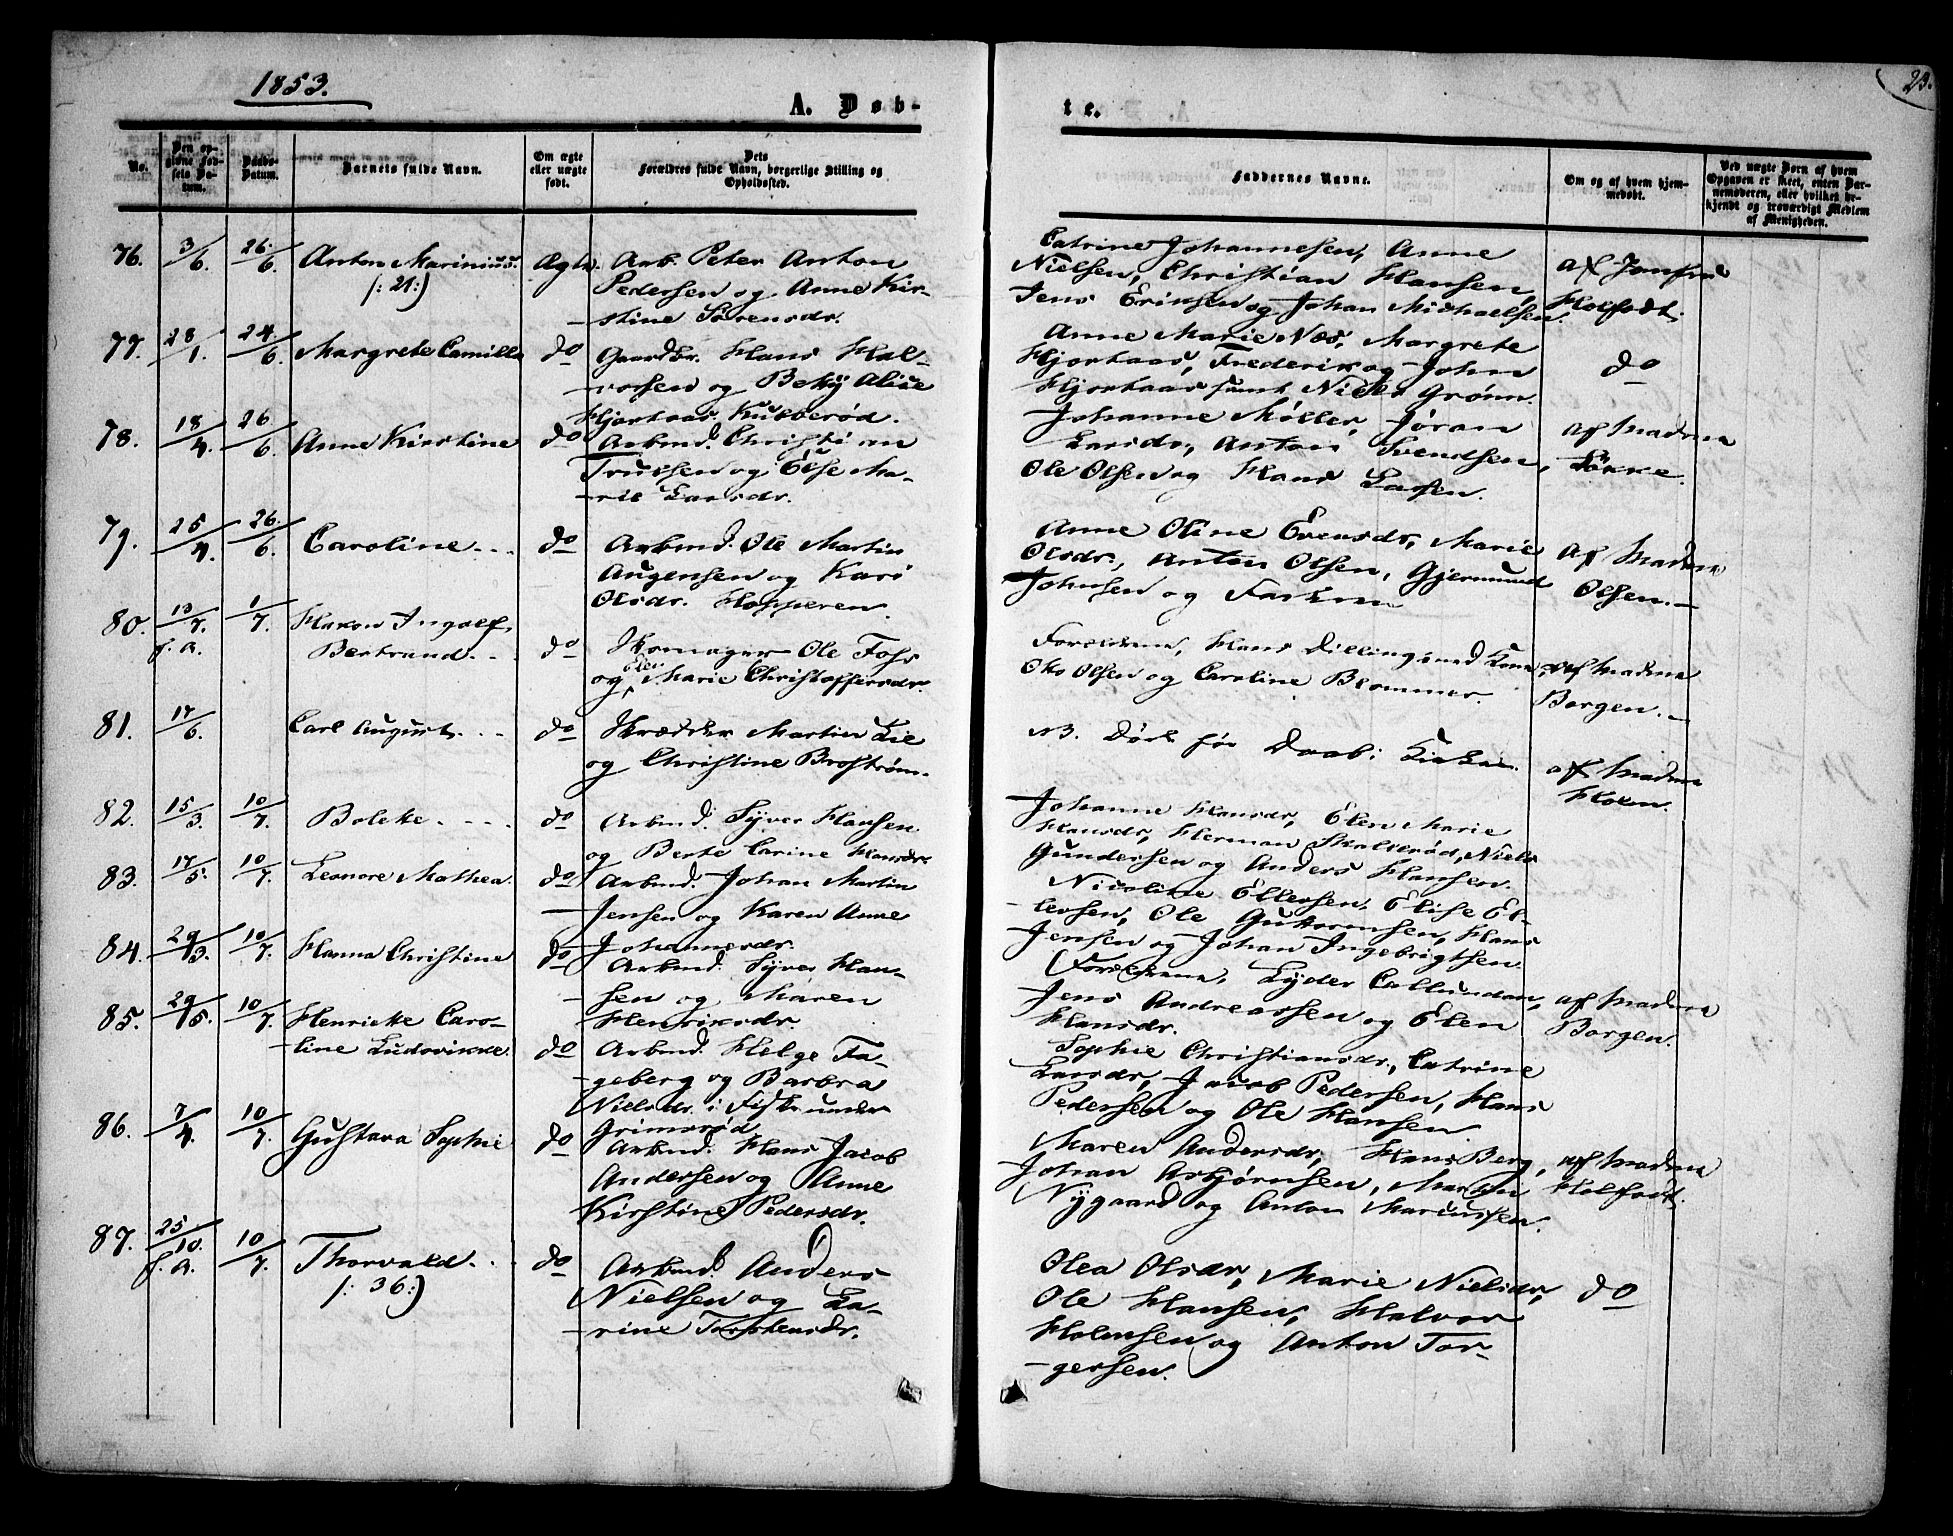 1853.
23.
A. Døb-
te.
No.
Den op-
givne Fød-
sels Da-
tum.
Daabs-
Datum.
Barnets fulde Navn.
Om ægte
eller uægte
født.
Dets
Forældres fulde Navn, borgerlige Stilling og
Opholdssted.
Faddernes Navne.
Om og af hvem hjem-
medøbt.
Ved uægte Børn af hvem
Opgaven er skeet, enten Bar-
nemoderen, eller hvilket be-
kjendt og troværdigt Medlem
af Menigheden.
76. 3/6. 26/6. Anton Marinius. Ægte. Arb. Peter Anton
(: 21:)
Pedersen og Anne Kir-
stine Sørensdr.
Catrine Johannesen, Anne
Nielsen, Christian Hansen,
Jens Eriksen og Johan Michaelsen.
af Jomfru
Holfodt.
77. 28/1. 24/6. Margrete Camilla do Gaardbr. Hans Hal-
vorsen og Betzy Alice
Hjorthaas Kubberød.
Anne Marie Næs, Margrete
Hjorthaas, Frederik og John
Hjorthaas samt Niels Grønn.
do
78. 18/4. 26/6. Anne Kirstine do Arbmd. Christian
Trulsen og Else Ma-
rie Larsdr.
Johanne Møller, Jøran
Larsdr., Anton Svendsen,
Ole Olsen og Hans Larsen.
af Madme
Løkke.
79. 25/4. 26/6. Caroline... do Arbmd. Ole Martin
Augensen og Kari
Olsdr. Hopperen.
Anne Oline Evensdr, Marie
Olsdr., Anton Olsen, Gjermund
Johnsen og Faderen
af Madme
Olsen.-
80. 13/7. f. A. 1/7. Hakon Ingolf
Bertrand.. do Skomager Ole Foss
og Elen Marie Christoffersdr.
Forældrene, Hans Dilling med Kone,
Otto Olsen og Caroline Blommer.
af Madme
Borgen.-
81. 17/6. Carl August... do Skrædder Martin Lie
og Christine Brostrøm.
NB. Død før Daab i Kirken.
af Madme
Holen.
82. 15/3. 10/7. Bolette.... do Arbmd. Syver Hansen
og Berte Carine Hansdr
Johanne Hansdr, Elen Marie
Hansdr, Herman Skallerød, Niels
Gundersen og Anders Hansen.
83. 17/5. 10/7. Leonore Mathea. do Arbmd. Johan Martin
Jensen og Karen Anne
Johannesdr.
Nicoline Ellefsen, Elise El-
lefsen, Ole Guttormsen, Hans
Jensen og Johan Ingebrigtsen.
84. 29/3. 10/7. Hanna Christine do Arbmd. Syver Han-
sen og Maren
Henriksdr.
Forældrene, Lyder Callundan,
Jens Andreassen og Elen
Hansdr.
af Madme
Borgen.
85. 29/5. 10/7. Henriette Caro-
line Ludovikke. do Arbmd. Helge Fa-
geberg og Barbra
Nielsdr. i Fiske under
Grimsrød
Sophie Christiansdr., Catrine
Larsdr, Jacob Pedersen, Hans
Pedersen og Ole Hansen
86. 7/4. 10/7. Gustava Sophie do Arbmd. Hans Jacob
Andersen og Anne
Kirstine Pedersdr.
Maren Andersdr, Hans Berg,
Johan Asbjørnsen, Martin
Nygaard og Anton Mariussen.
af Madme
Holfodt.
87. 25/10. f. A. 10/7. Thorvald... do Arbmd. Anders
(: 36:)
Nielsen og Ka-
rine Torstensdr.
Olea Olsdr, Marie Nielsdr,
Ole Hansen, Halvor
Holmsen og Anton Tor-
gersen.
do